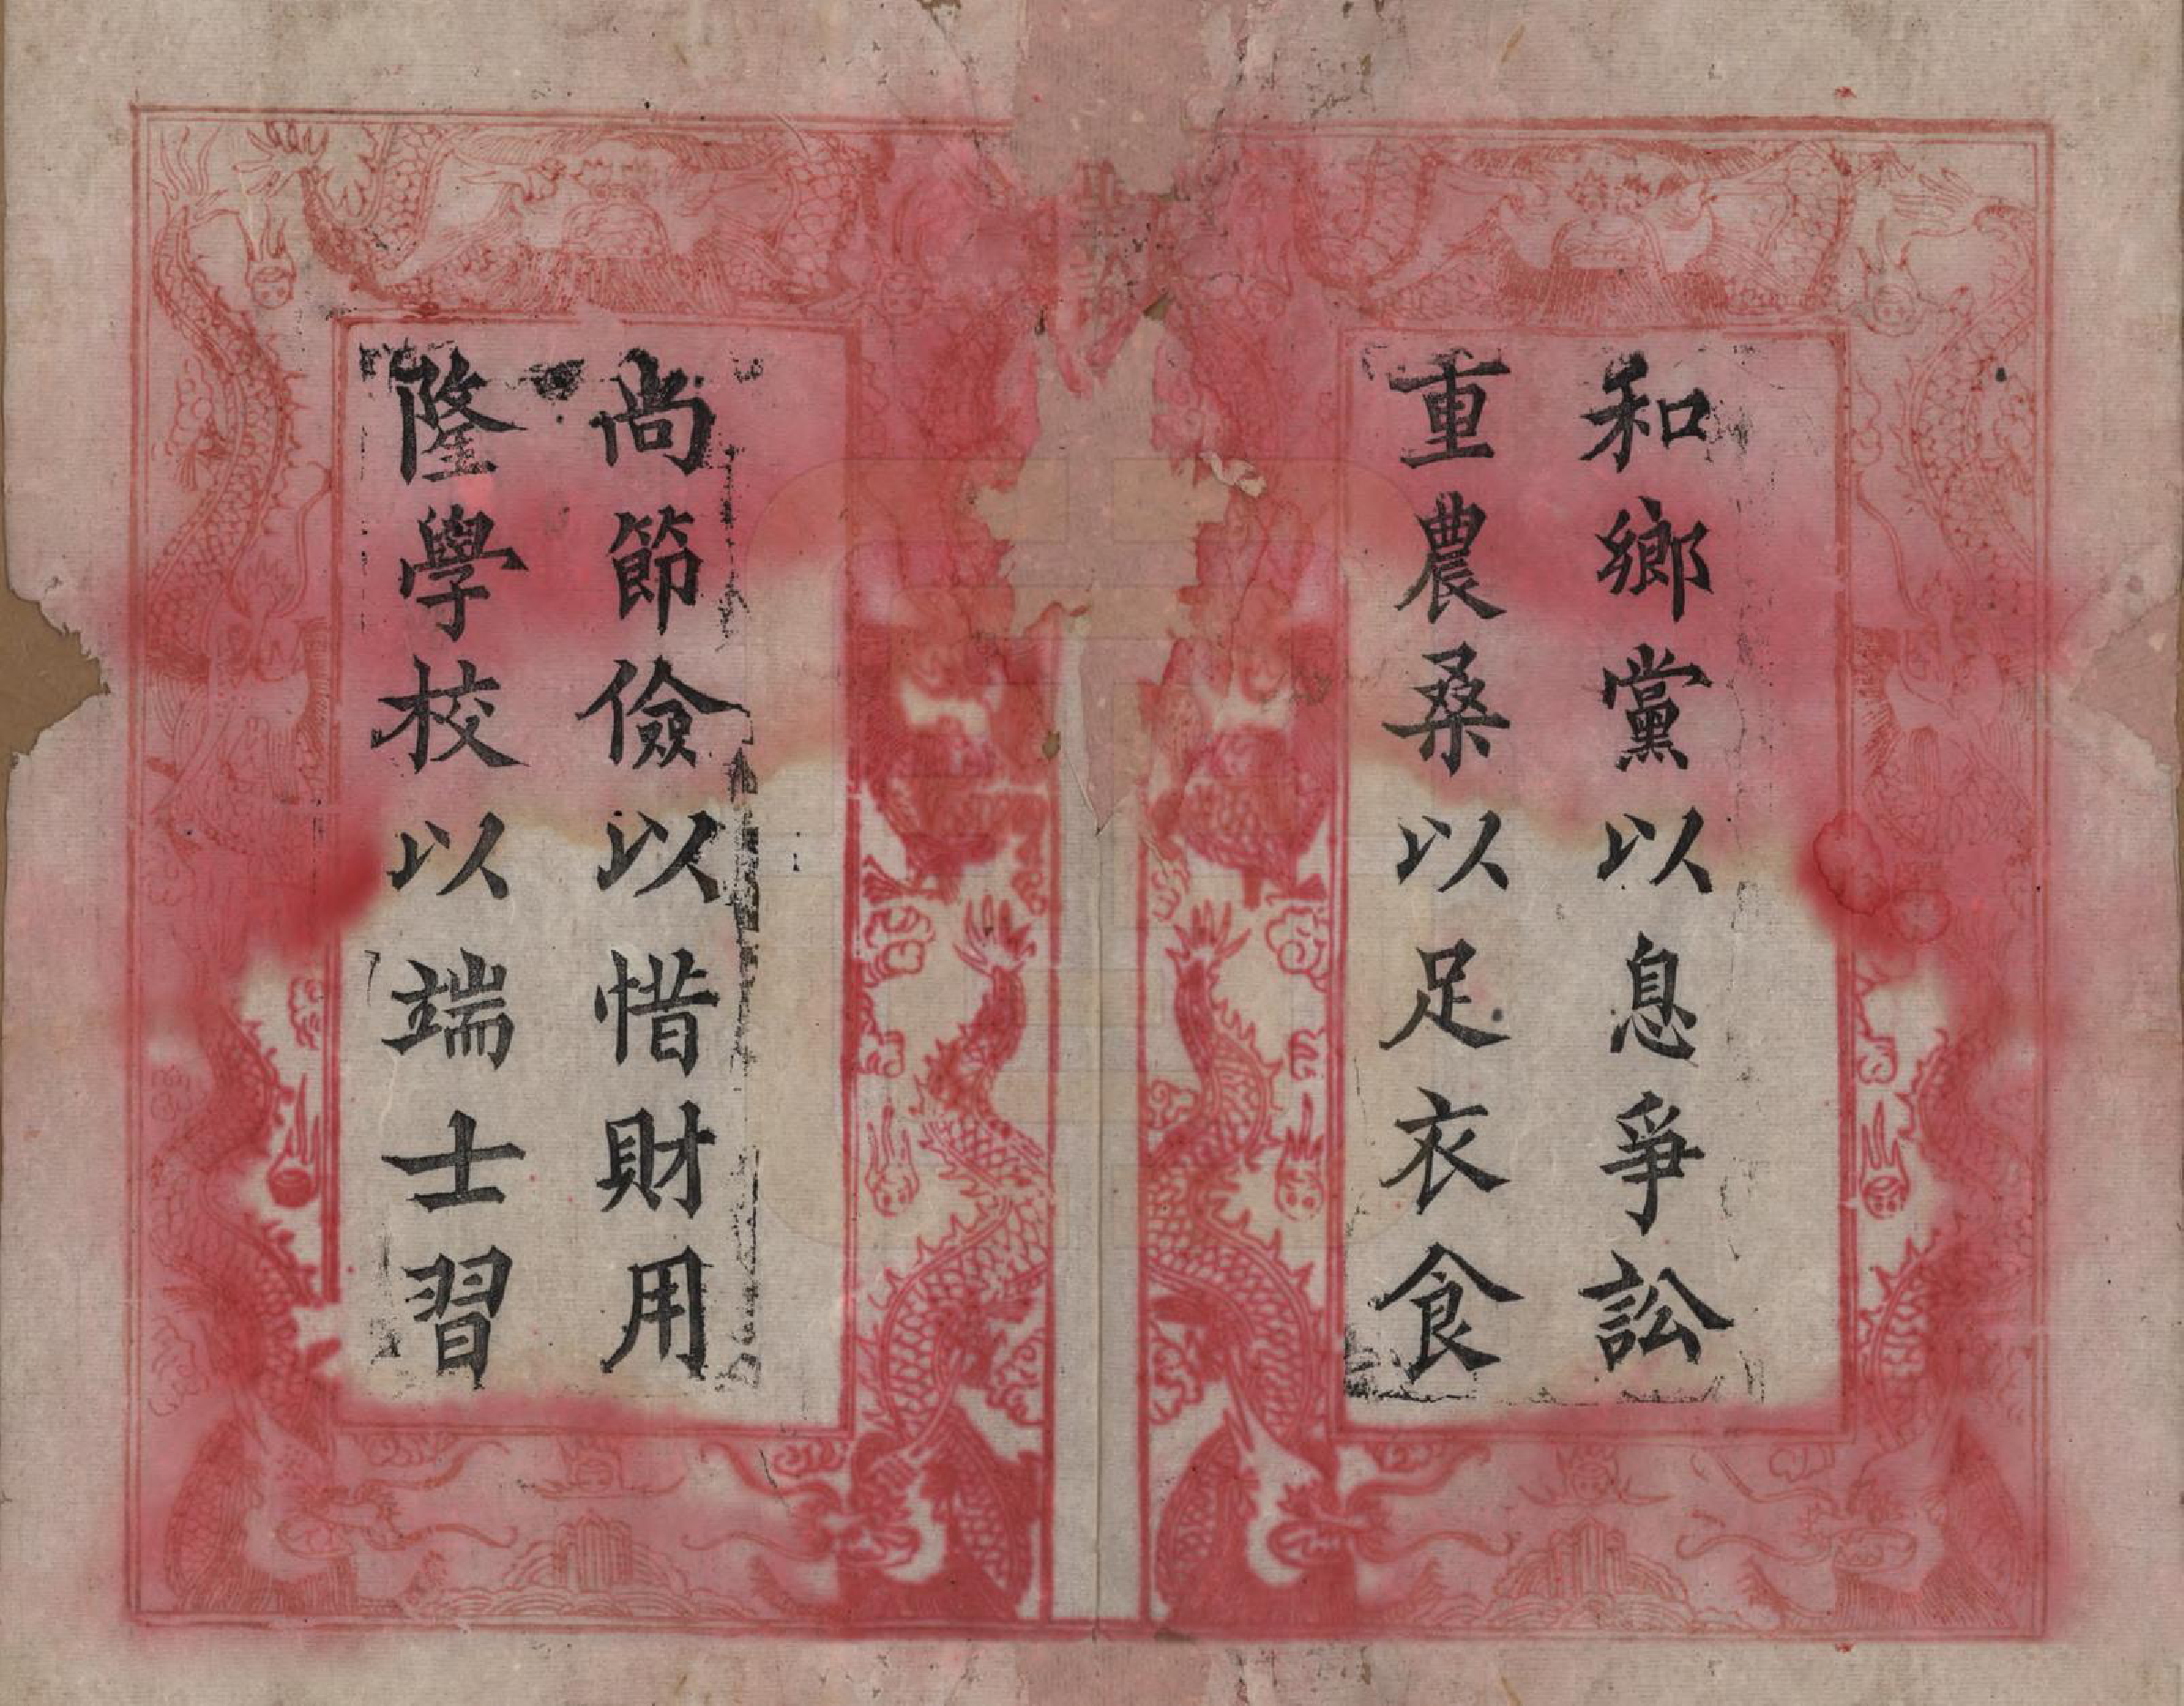 和鄉黨以息爭訟
重農桑以足衣食
聖諭
尚節儉以惜財用
隆學校以端士習